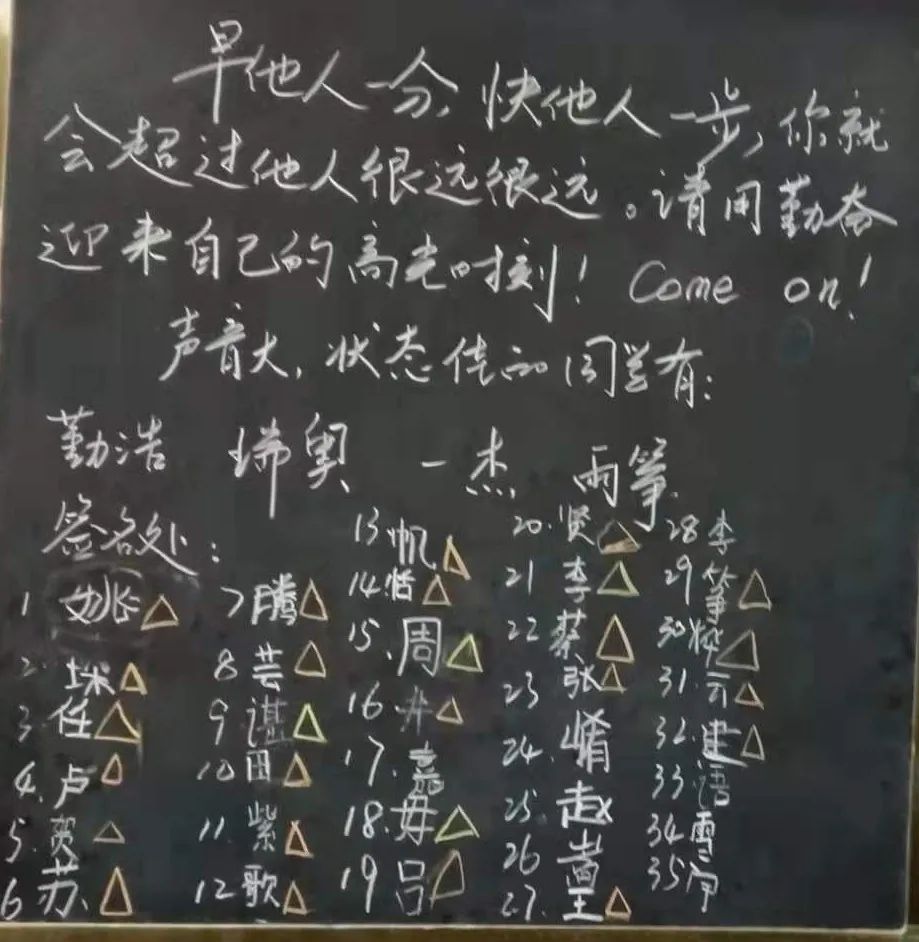 早他人一分,快他人一步,你就
会超过他人很远很远。请用勤奋
迎来自己的高光时刻! Come on!
声音大,状态佳的同学有:
勤浩 瑞奥 一杰 雨筝
签名处:
1 姚
2.垛
3.任
4.卢
5.贺
6 苏
7腾
8 芸
9 谌
10 田
11.紫
12歌
13帆
14恬
15.周
16
17.嘉
18.毋
19 吕
20.贤
21 李
22 蔡
23 张
24.
25.赵
26
27.王
28李
29筝
30.烨
31.云
32.建
33语
34雪
35